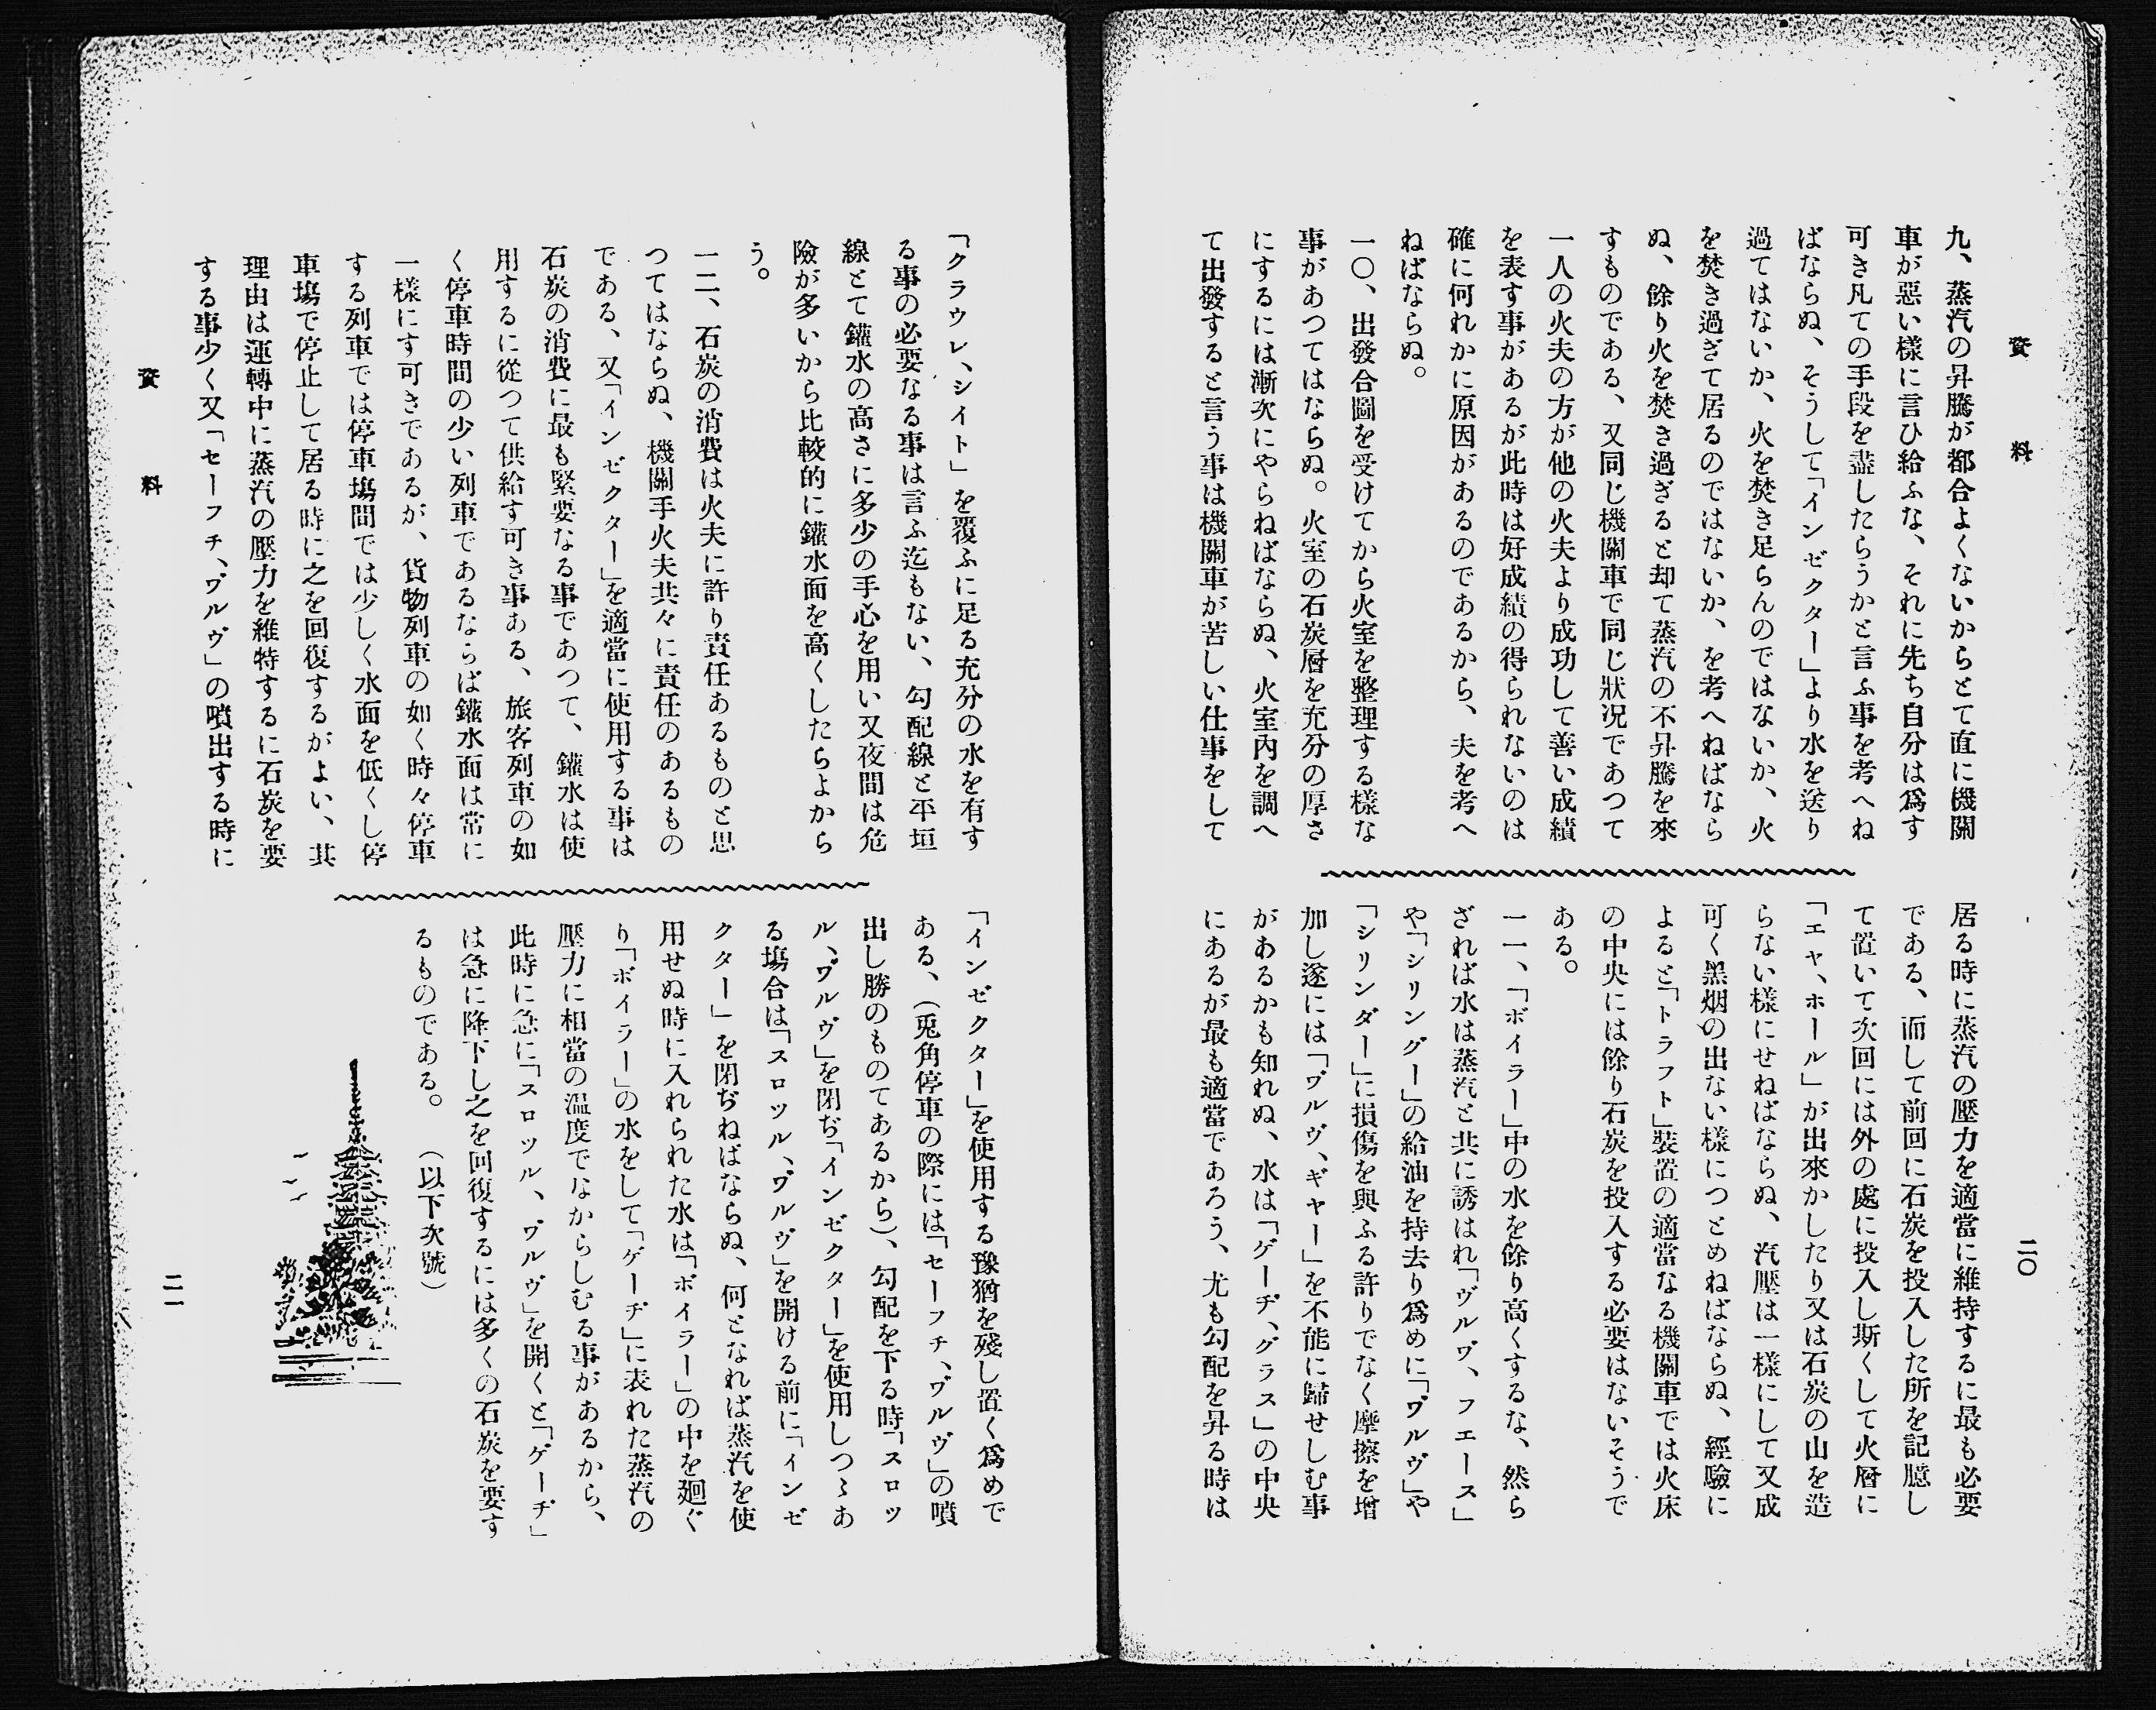 資料
九、蒸汽の昇騰が都合よくないからとて直に機關
車が惡い樣に言ひ給ふな、それに先ち自分は爲す
可き凡ての手段を盡したらうかと言ふ事を考へね
ばならぬ、そうして「インゼクター」より水を送り
過てはないか、火を焚き足らんのではないか、火
を焚き過ぎて居るのではないか、を考へねばなら
ぬ、餘り火を焚き過ぎると却て蒸汽の不昇騰を來
すものである、又同じ機關車で同じ狀况であつて
一人の火夫の方が他の火夫より成功して善い成績
を表す事があるが此時は好成績の得られないのは
確に何れかに原因があるのであるから、夫を考へ
ねばならぬ。
一〇、出發合圖を受けてから火室を整理する樣な
事があつてはならぬ。火室の石炭層を充分の厚さ
にするには漸次にやらねばならぬ、火室內を調へ
て出發すると言う事は機關車が苦しい仕事をして
居る時に蒸汽の壓力を適當に維持するに最も必要
である、而して前回に石炭を投入した所を記臆し
て置いて次回には外の處に投入し斯くして火層に
「エヤ、ホール」が出來かしたり又は石炭の山を造
らない樣にせねばならぬ、汽壓は一樣にして又成
可く黑烟の出ない樣につとめねばならぬ、經驗に
よると「トラフト」裝置の適當なる機關車では火床
の中央には餘り石炭を投入する必要はないそうで
ある。
一一、「ボイラー」中の水を餘り高くするな、然ら
ざれば水は蒸汽と共に誘はれ「ヴルヴ、フエース」
や「シリングー」の給油を持去り爲めに「ヴルヴ」や
「シリンダー」に損傷を與ふる許りでなく摩擦を增
加し遂には「ヴルヴ、ギヤー」を不能に歸せしむ事
があるかも知れぬ、水は「ゲーヂ、グラス」の中央
にあるが最も適當であろう、尤も勾配を昇る時は
二〇
「クラウレ、シイト」を覆ふに足る充分の水を有す
る事の必要なる事は言ふ迄もない、勾配線と平垣
線とて鑵水の高さに多少の手心を用い又夜間は危
險が多いから比較的に鑵水面を高くしたらよから
う。
一二、石炭の消費は火夫に許り責任あるものと思
つてはならぬ、機關手火夫共々に責任のあるもの
である、又「インゼクター」を適當に使用する事は
石炭の消費に最も緊要なる事であつて、鑵水は使
用するに從つて供給す可き事ある、旅客列車の如
く停車時間の少い列車であるならば鑵水面は常に
一樣にす可きであるが、貨物列車の如く時々停車
する列車では停車塲間では少しく水面を低くし停
車塲で停止して居る時に之を回復するがよい、其
理由は運轉中に蒸汽の壓力を維特するに石炭を要
する事少く又「セーフチ、ヴルヴ」の噴出する時に
「インゼクター」を使用する豫猶を殘し置く爲めで
ある、(兎角停車の際には「セーフチ、ヴルヴ」の噴
出し勝のものてあるから)、勾配を下る時「スロッ
ル、ヴルヴ」を閉ぢ「インゼクター」を使用しつゝあ
る塲合は「スロツル、ヴルヴ」を開ける前に「インゼ
クター」を閉ぢねばならぬ、何となれば蒸汽を使
用せぬ時に入れられた水は「ボイラー」の中を廻ぐ
り「ボイラー」の水をして「ゲーヂ」に表れた蒸汽の
壓力に相當の溫度でなからしむる事があるから、
此時に急に「スロツル、ヴルヴ」を開くと「ゲーヂ」
は急に降下し之を回復するには多くの石炭を要す
るものである。　(以下次號)
資料
二一